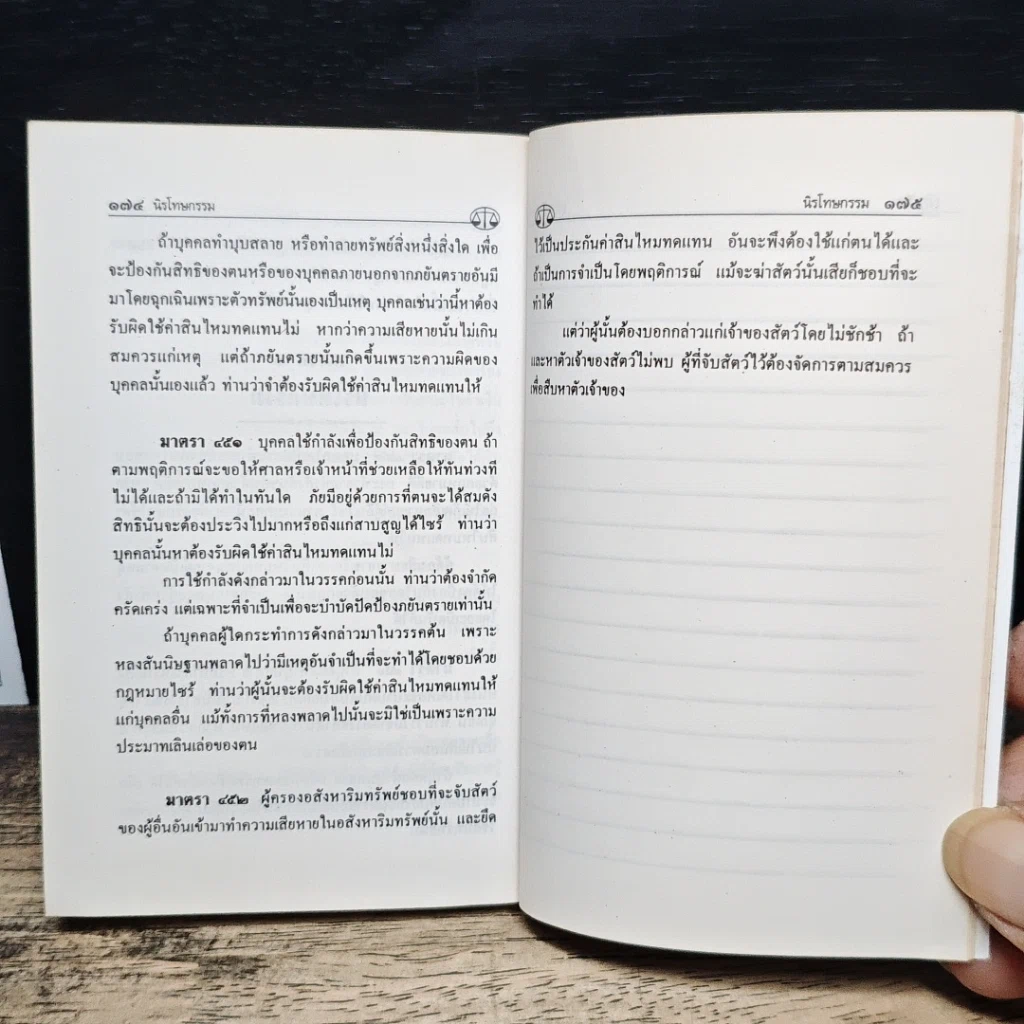 ๑๗๔ นิรโทษกรรม
ถ้าบุคคลทำบุบสลาย หรือทำลายทรัพย์สิ่งหนึ่งสิ่งใด เพื่อ
จะป้องกันสิทธิของตนหรือของบุคคลภายนอกจากภยันตรายอันมี
มาโดยฉุกเฉินเพราะตัวทรัพย์นั้นเองเป็นเหตุ บุคคลเช่นว่านี้หาต้อง
รับผิดใช้ค่าสินไหมทดแทนไม่ หากว่าความเสียหายนั้นไม่เกิน
สมควรแก่เหตุ แต่ถ้าภยันตรายนั้นเกิดขึ้นเพราะความผิดของ
บุคคลนั้นเองแล้ว ท่านว่าจำต้องรับผิดใช้ค่าสินไหมทดแทนให้
มาตรา ๔๕๑ บุคคลใช้กำลังเพื่อป้องกันสิทธิของตน ถ้า
ตามพฤติการณ์จะขอให้ศาลหรือเจ้าหน้าที่ช่วยเหลือให้ทันท่วงที
ไม่ได้และถ้ามิได้ทำในทันใด ภัยมีอยู่ด้วยการที่ตนจะได้สมดัง
สิทธินั้นจะต้องประวิงไปมากหรือถึงแก่สาบสูญได้ไซร้ ท่านว่า
บุคคลนั้นหาต้องรับผิดใช้ค่าสินไหมทดแทนไม่
การใช้กำลังดังกล่าวมาในวรรคก่อนนั้น ท่านว่าต้องจำกัด
ครัดเคร่ง แต่เฉพาะที่จำเป็นเพื่อจะบำบัดปัดป้องภยันตรายเท่านั้น
ถ้าบุคคลผู้ใดกระทำการดังกล่าวมาในวรรคต้น เพราะ
หลงสันนิษฐานพลาดไปว่ามีเหตุอันจำเป็นที่จะทำได้โดยชอบด้วย
กฎหมายไซร้ ท่านว่าผู้นั้นจะต้องรับผิดใช้ค่าสินไหมทดแทนให้
แก่บุคคลอื่น แม้ทั้งการที่หลงพลาดไปนั้นจะมิใช่เป็นเพราะความ
ประมาทเลินเล่อของตน
มาตรา ๔๕๒ ผู้ครองอสังหาริมทรัพย์ชอบที่จะจับสัตว์
ของผู้อื่นอันเข้ามาทำความเสียหายในอสังหาริมทรัพย์นั้น และยึด
นิรโทษกรรม ๑๗๕
ไว้เป็นประกันค่าสินไหมทดแทน อันจะพึงต้องใช้แก่ตนได้และ
ถ้าเป็นการจำเป็นโดยพฤติการณ์ แม้จะฆ่าสัตว์นั้นเสียก็ชอบที่จะ
ทำได้
แต่ว่าผู้นั้นต้องบอกกล่าวแก่เจ้าของสัตว์โดยไม่ชักช้า ถ้า
และหาตัวเจ้าของสัตว์ไม่พบ ผู้ที่จับสัตว์ไว้ต้องจัดการตามสมควร
เพื่อสืบหาตัวเจ้าของ